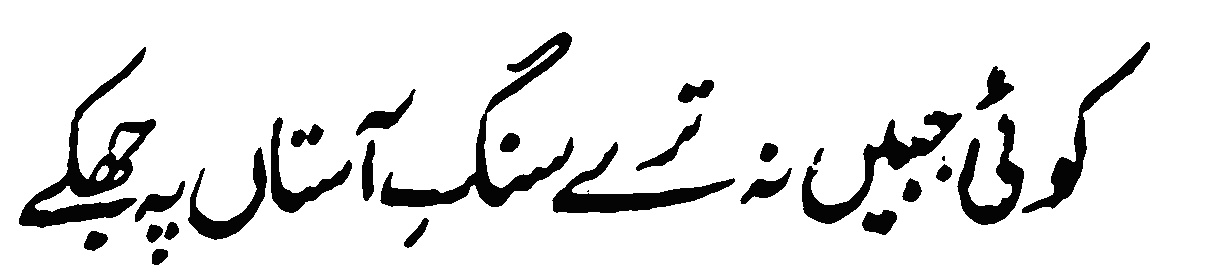 کوئی جبیں نہ ترے سنگِ آستاں پہ جھکے